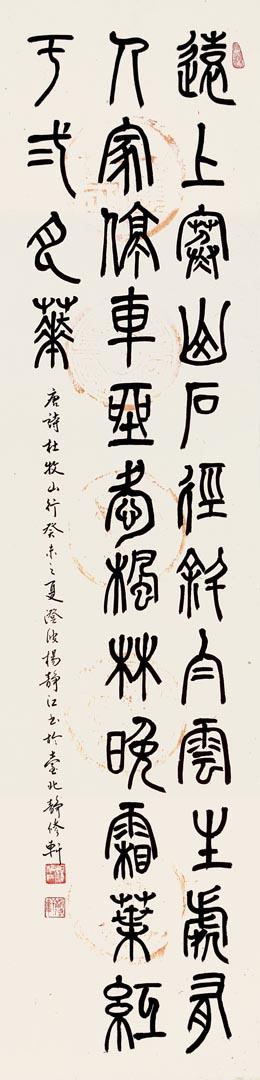 遠上寒山石徑斜白雲生處有
人家停車坐愛楓林晚霜葉紅
于弍月華
唐詩杜牧山行癸未之夏澄波楊靜江书於臺北靜修軒